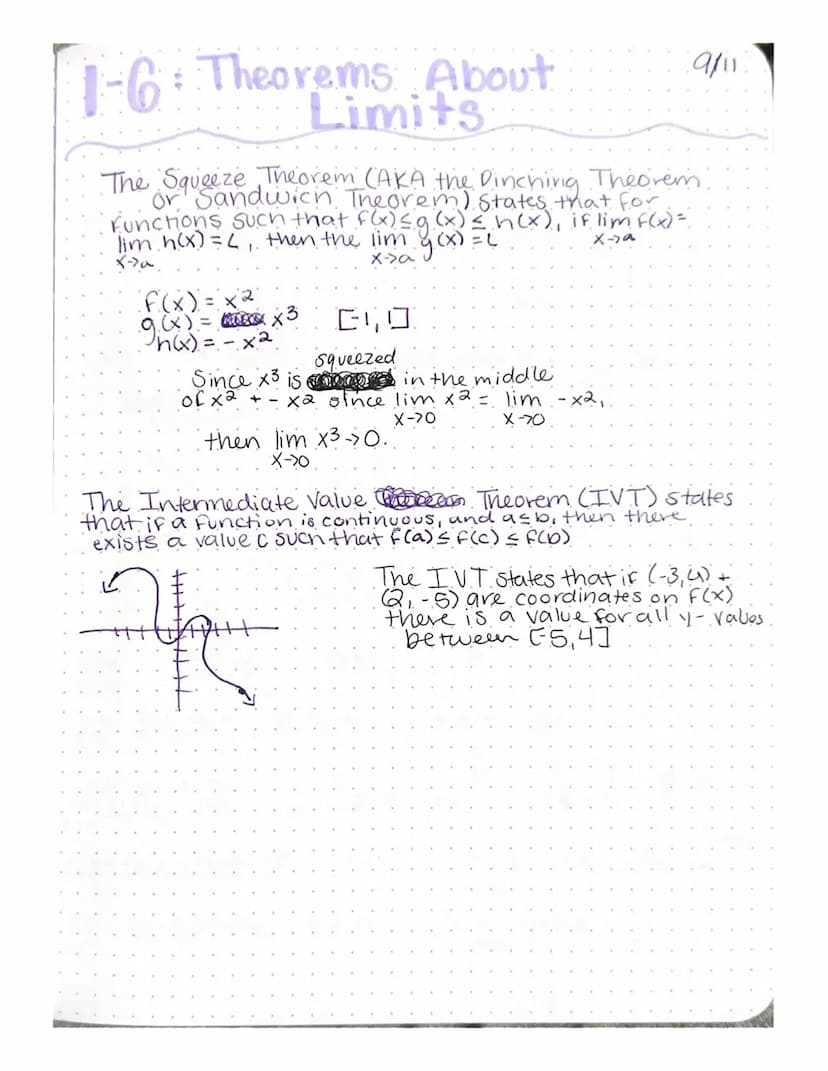 9/11
1-6: Theorems About
Limits
The Squeeze Theorem (AKA the Pinching Theorem
or Sandwich Theorem) states that for
functions such that f(x)≤g(x)≤h(x), if lim f(x)=
x→a
lim h(x)=L, then the lim g(x)=L
x→a x→a
f(x) = x²
g(x) = x³ [-1, 1]
h(x) = -x²
squeezed
Since x³ is in the middle
of x² + -x² since lim x² = lim -x²,
x→0 x→0
then lim x³→0.
x→0
The Intermediate Value Theorem (IVT) states
that if a function is continuous, and a≤b, then there
exists a value c such that f(a)≤f(c)≤f(b)
The IVT states that if (-3,4) +
(2,-5) are coordinates on f(x)
there is a value for all y-values
between [-5,4]